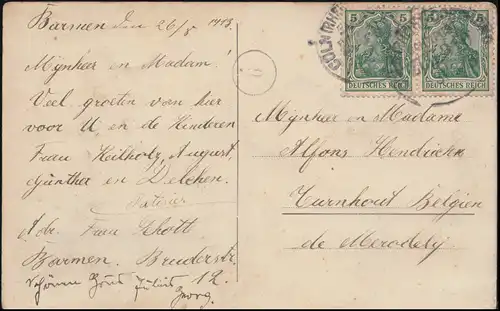 Barmen den 26/5 1913.
Mijnheer en Madam!
Veel groeten van hier
voor U en de Kinderen
Frau Keilholz, August,
Günther en Delchen.
Adr. Frau Schott
Barmen. Bruderstr.
12.
Schönen Gruß Julius
Georg.
5 5
DEUTSCHES REICH DEUTSCHES REICH
Mijnheer en Madame
Alfons Hendrickx
Turnhout Belgien
de Merodelij